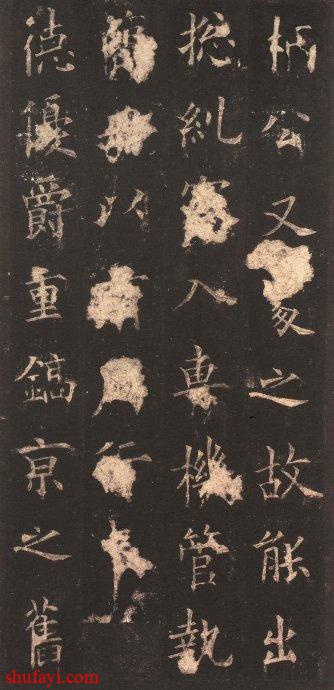 柄公又象之故能出
總糺寫入専機管執
簡以行
德優爵重鎬京之舊
shufayi.com